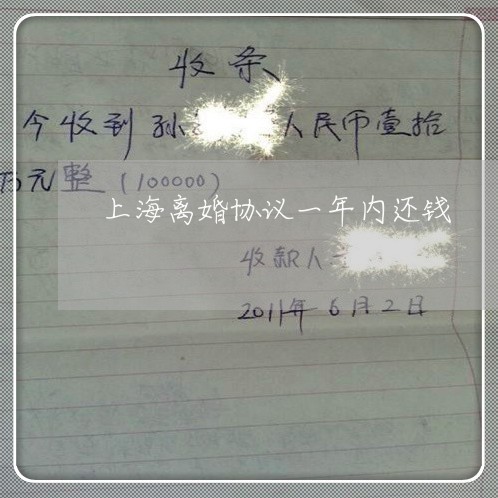 收条
今收到孙 人民币壹拾
万元整（100000）
上海离婚协议一年内还钱
收款人
2011年6月2日